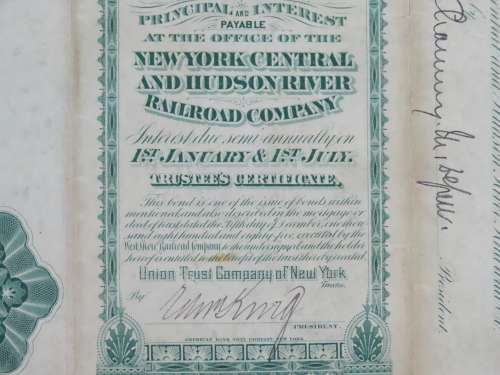 PRINCIPAL AND INTEREST
PAYABLE
AT THE OFFICE OF THE
NEW YORK CENTRAL
AND HUDSON RIVER
RAILROAD COMPANY
Interest due semi-annually on
1ST JANUARY & 1ST JULY.
TRUSTEE'S CERTIFICATE.
This bond is one of the issue of bonds within
mentioned, and also described in the mortgage or
deed of trust dated the fifth day of December, one thou
sand eight hundred and eighty five, executed by the
West Shore Railroad Company to the undersigned and the holder
hereof is entitled to the benefit of the trust thereby created
Union Trust Company of New York
Trustee.
By
PRESIDENT.
AMERICAN BANK NOTE COMPANY, NEW YORK.
Chauncey M. Depew.
President